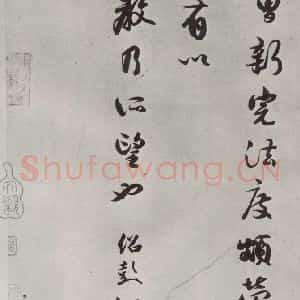 新完法度頗
有以
教乃所望也 紹彭
Shufawang.CN